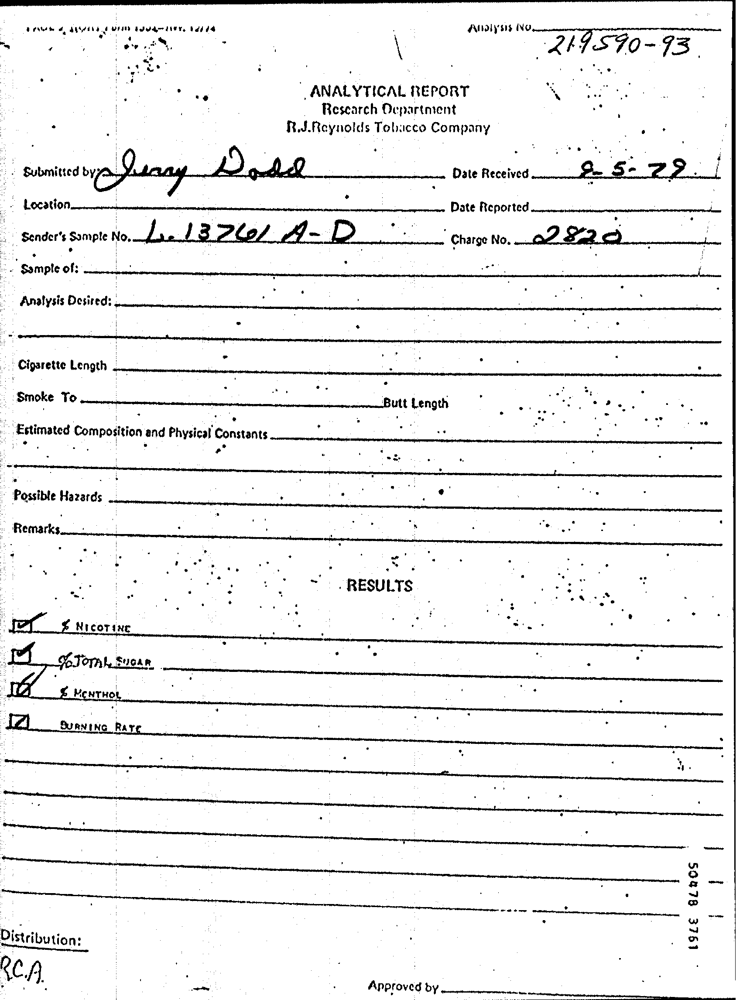 Analysis No.
219590-93
ANALYTICAL REPORT
Research Department
R.J.Reynolds Tobacco Company
Submitted by: Jerry Dodd Date Received 9-5-79
Location Date Reported
Sender's Sample No. L. 13761 A-D Charge No. 2820
Sample of:
Analysis Desired:
Cigarette Length
Smoke To Butt Length
Estimated Composition and Physical Constants
Possible Hazards
Remarks
RESULTS
% NICOTINE
% TOTAL SUGAR
% MENTHOL
BURNING RATE
50478 3761
Distribution:
R.C.A.
Approved by